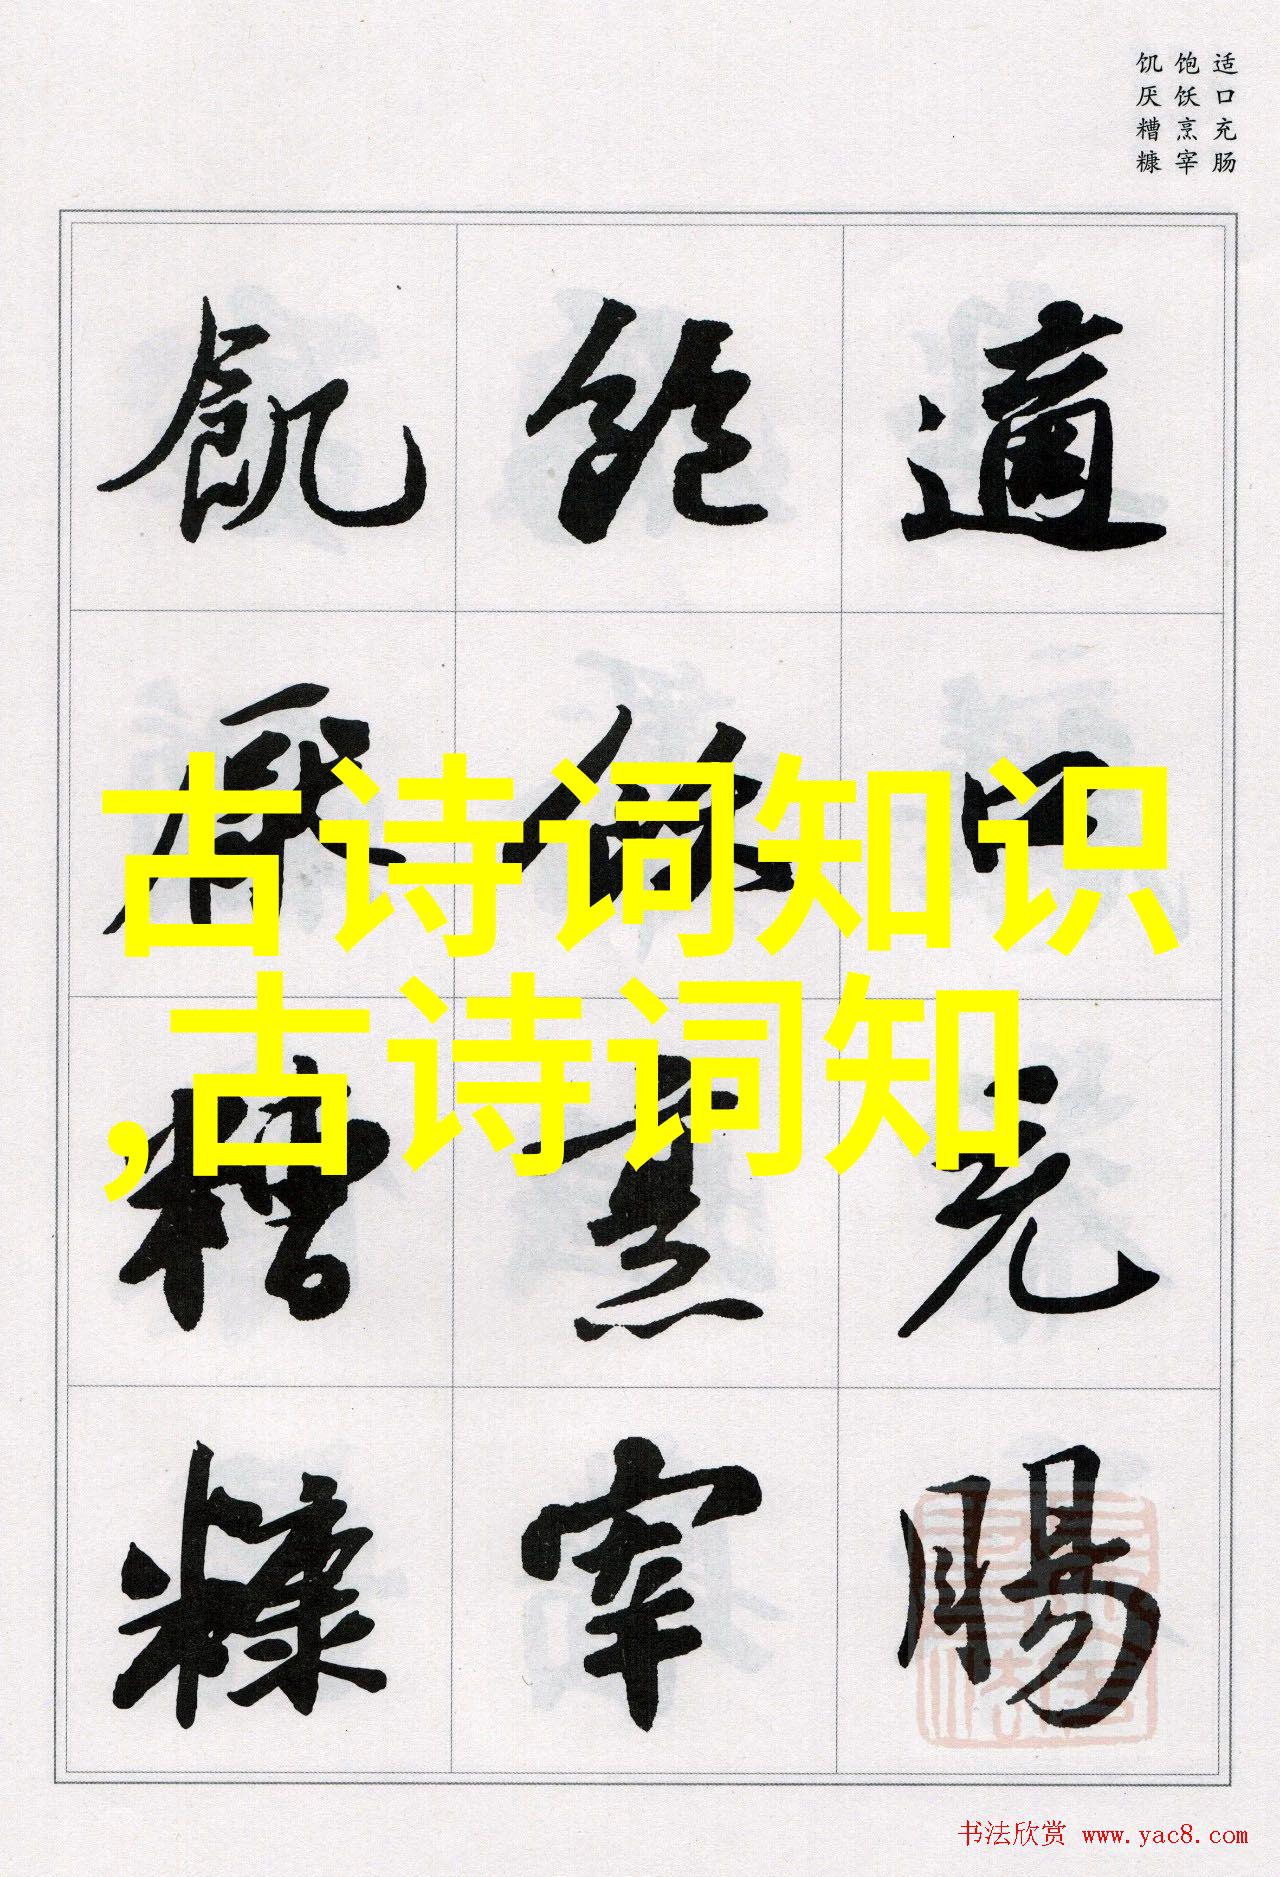 适口充肠
饱饫烹宰
饥厌糟糠
適口充腸
飽飫烹宰
飢厭糟糠
古诗词知识
,古诗词知
书法欣赏 www.yac8.com